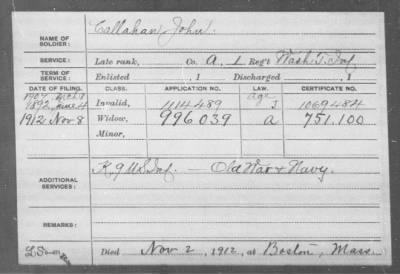 NAME OF SOLDIER: Callahan, John.
SERVICE: Late rank, Co. A, 1 Reg't Wash. T. Inf
TERM OF SERVICE: Enlisted , 1 Discharged , 1
DATE OF FILING. CLASS. APPLICATION NO. LAW. CERTIFICATE NO.
1907 Mch 8 age
1892 June 4 Invalid, 1114489 J 1069484
1912 Nov 8 Widow, 996039 a 751.100
Minor,
ADDITIONAL SERVICES: K, 9 U.S. Inf. — Old War & Navy.
REMARKS:
Died Nov 2, 1912, at Boston, Mass.